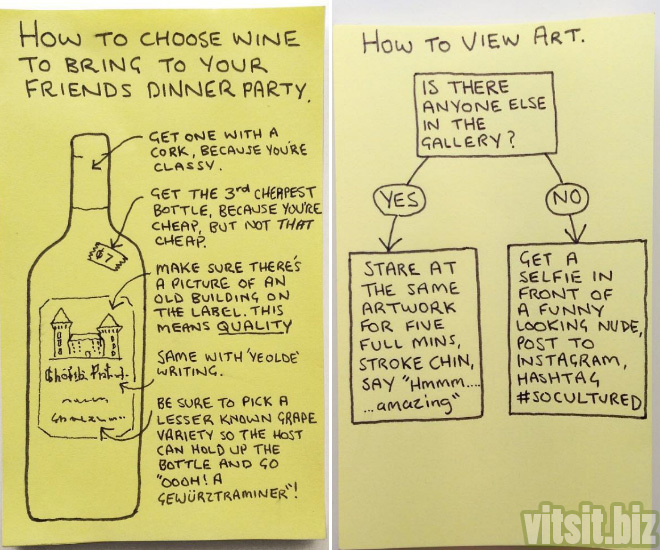 HOW TO CHOOSE WINE
TO BRING TO YOUR
FRIENDS DINNER PARTY.
GET ONE WITH A
CORK, BECAUSE YOU'RE
CLASSY.
GET THE 3rd CHEAPEST
BOTTLE, BECAUSE YOU'RE
CHEAP, BUT NOT THAT
CHEAP.
$7
MAKE SURE THERE'S
A PICTURE OF AN
OLD BUILDING ON
THE LABEL. THIS
MEANS QUALITY
SAME WITH 'YEOLDE'
WRITING.
BE SURE TO PICK A
LESSER KNOWN GRAPE
VARIETY SO THE HOST
CAN HOLD UP THE
BOTTLE AND GO
"OOOH! A
GEWÜRZTRAMINER"!
HOW TO VIEW ART.
IS THERE
ANYONE ELSE
IN THE
GALLERY?
YES
NO
STARE AT
THE SAME
ARTWORK
FOR FIVE
FULL MINS,
STROKE CHIN,
SAY "Hmmm....
...amazing"
GET A
SELFIE IN
FRONT OF
A FUNNY
LOOKING NUDE,
POST TO
INSTAGRAM,
HASHTAG
#SOCULTURED
vitsit.biz